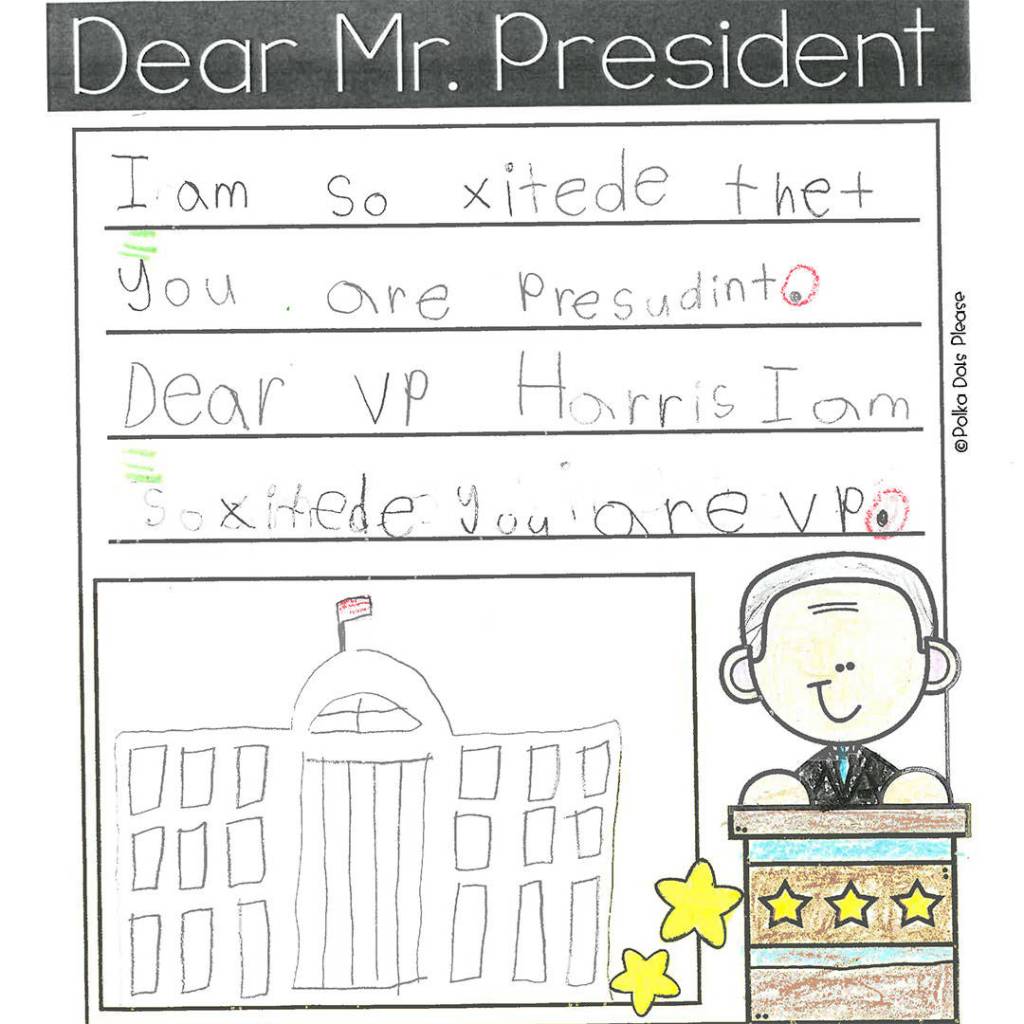 Dear Mr. President
I am so xitede thet
you are presudint.
Dear vp Harris I am
so xitede you are vp.
©Polka Dots Please